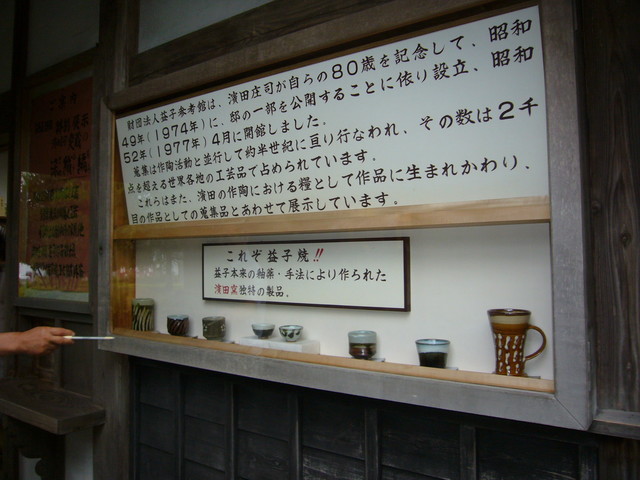 財団法人益子参考館は、濱田庄司が自らの80歳を記念して、昭和
49年(1974年)に、邸の一部を公開することに依り設立、昭和
52年(1977年)4月に開館しました。
蒐集は作陶活動と並行して約半世紀に亘り行なわれ、その数は2千
点を超える世界各地の工芸品で占められています。
これらはまた、濱田の作陶における糧として作品に生まれかわり、
目の作品としての蒐集品とあわせて展示しています。
これぞ益子焼!!
益子本来の釉薬・手法により作られた
濱田窯独特の製品。